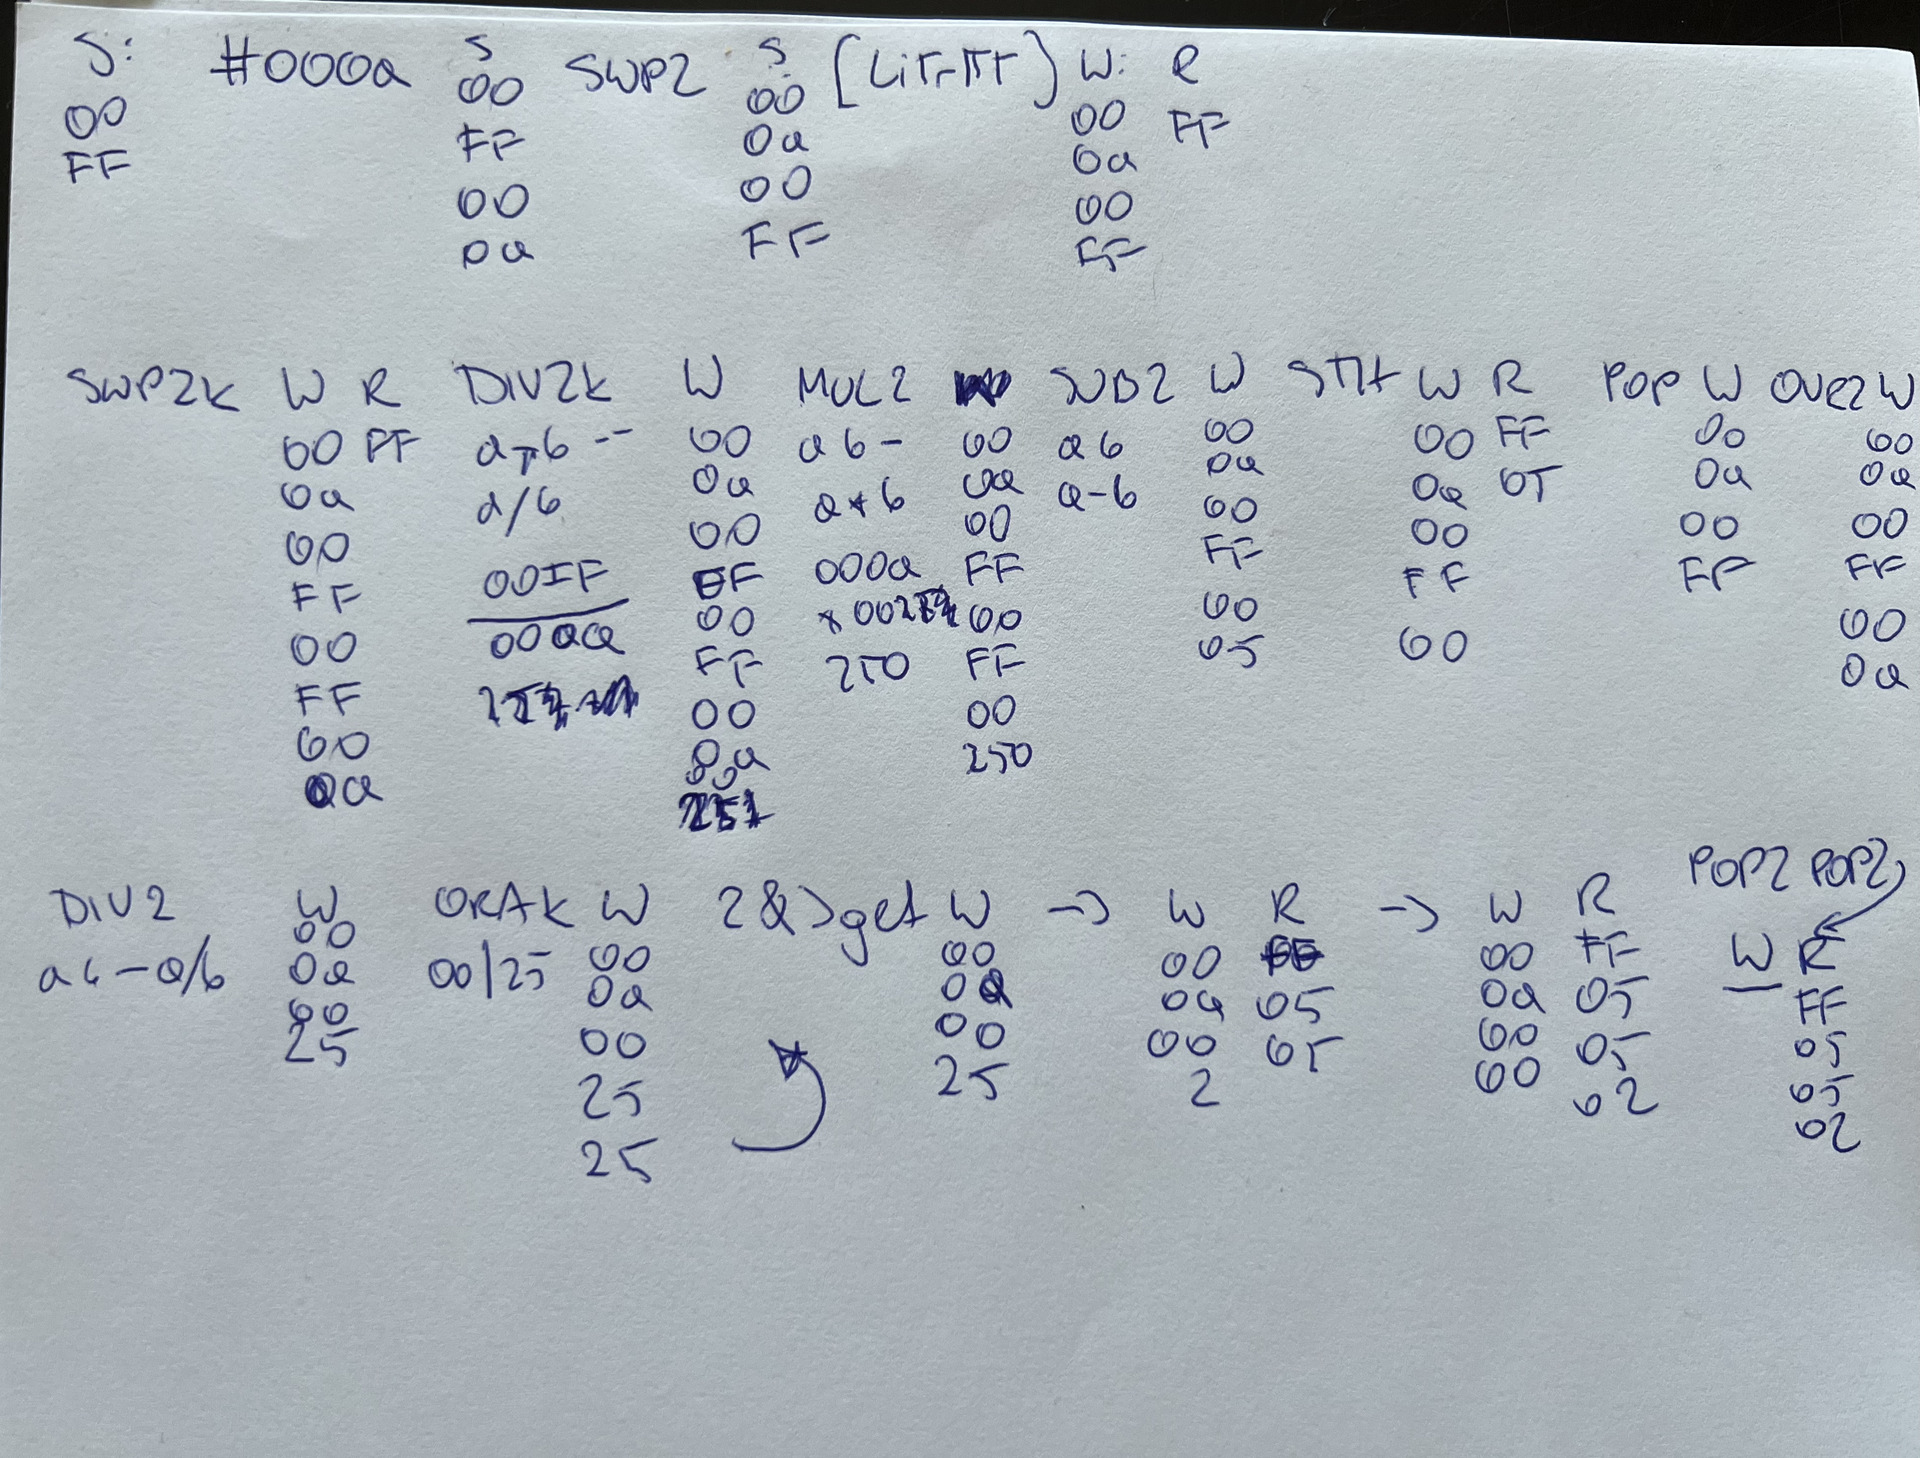 S: #000a S SWP2 S: [LiTr-TT] W: R
00 00 00 00 FF
FF FF 0a 0a
00 00 00
0a FF FF
SWP2k W R DIV2k W MUL2 SUB2 W STH W R POP W OVR2 W
00 FF a b -- 00 a b - 00 a b 00 00 FF 00 00
0a a/b 0a a*b 0a a-b 0a 0a 05 0a 0a
00 00 00 00 00 00 00
FF 00FF FF 000a FF FF FF FF FF
00 000a 00 * 00 00 00 00 00
FF FF 250 FF 05 0a
00 00 00
0a 0a 250
00
DIV2 W ORAk W 2 &>get W -> W R -> W R POP2 POP2
00 00 00 00 00 FF W R
a b - a/b 0a 00|25 0a 0a 0a 05 0a 05 FF
00 00 00 00 05 00 05 05
25 25 25 2 00 02 05
25 02